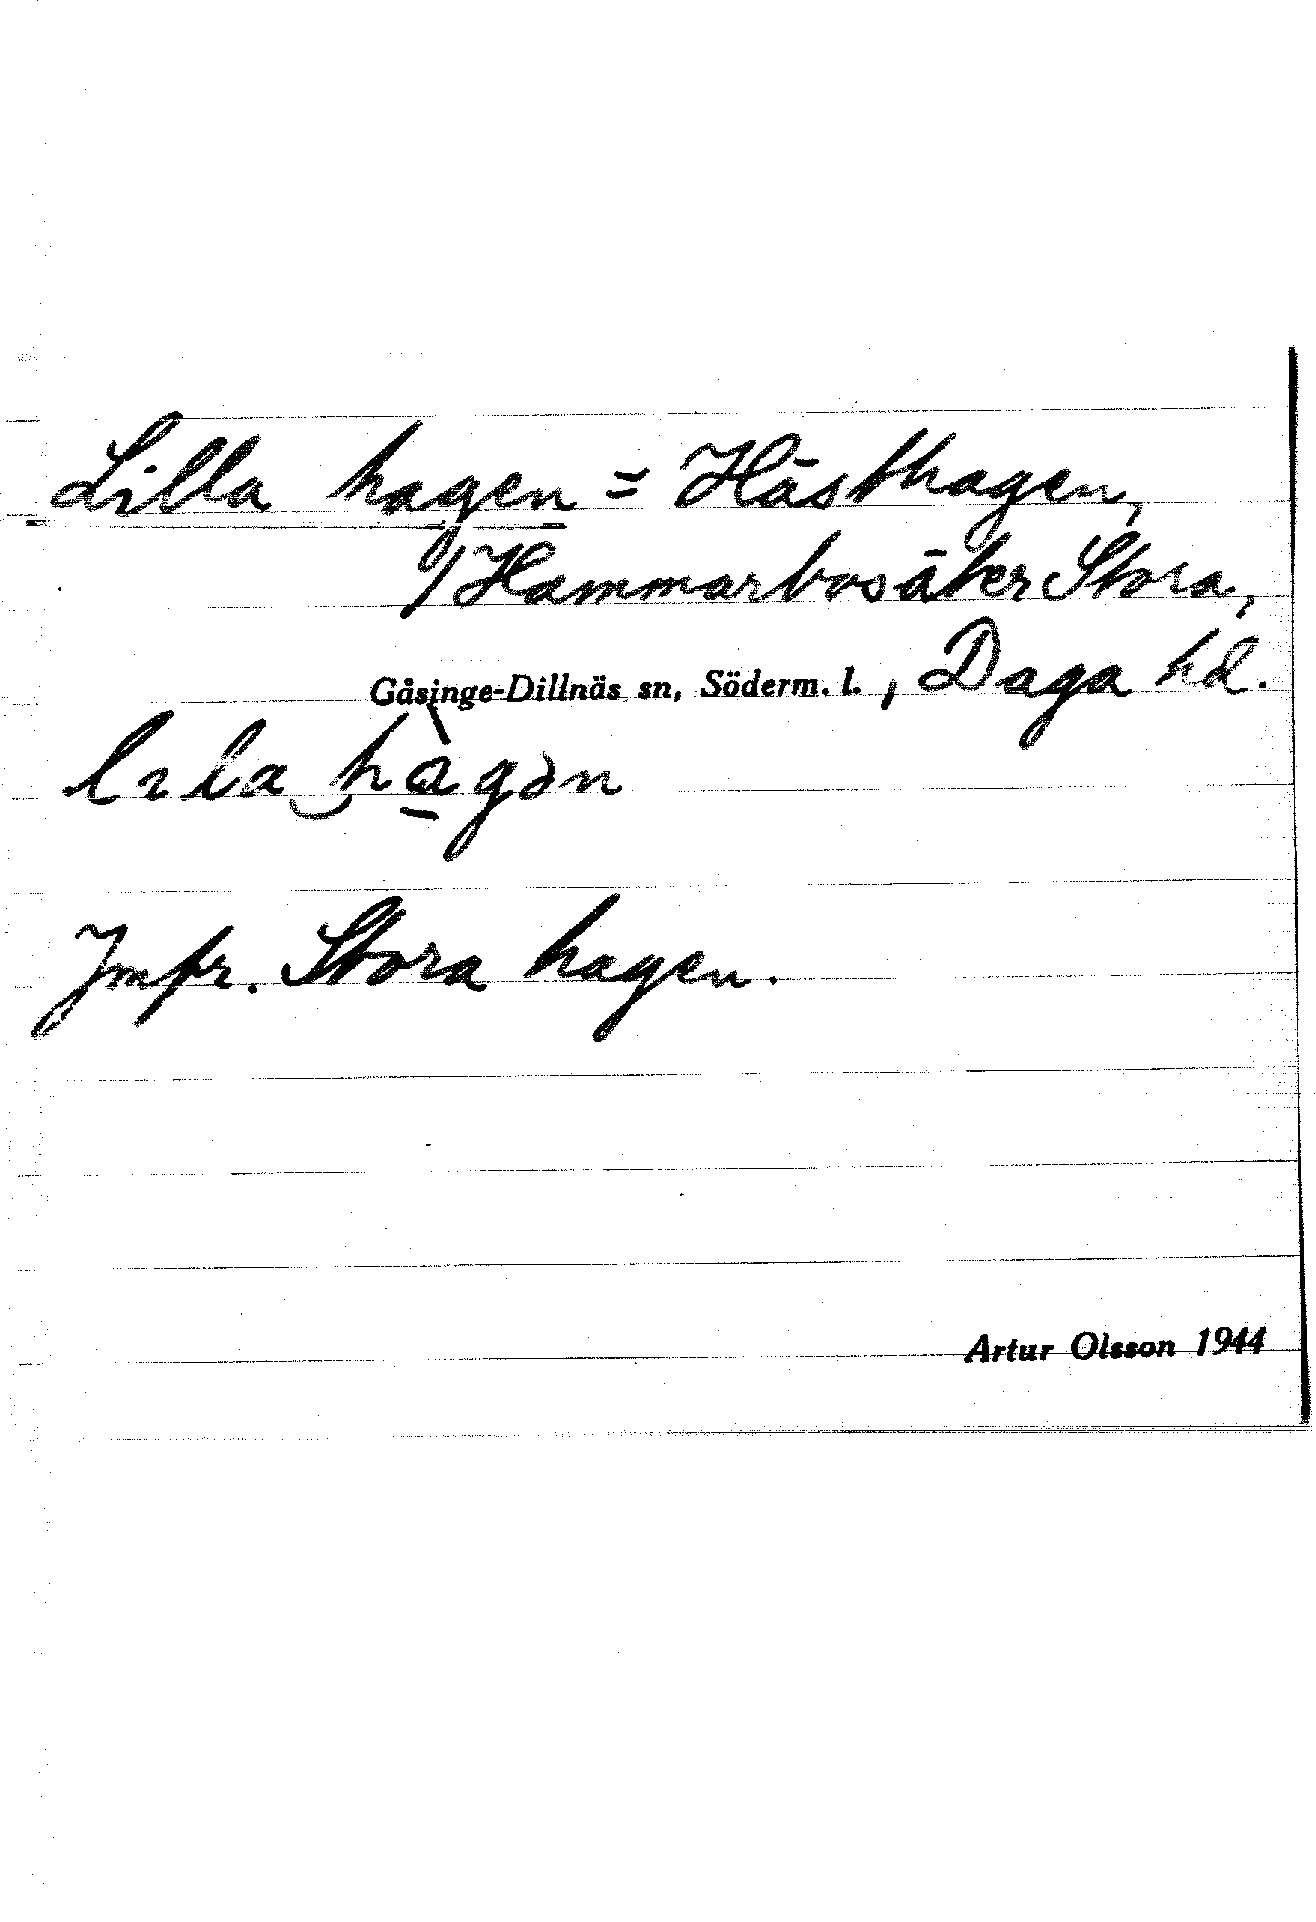 Lilla hagen = Hästhagen,
/Hammarbosäter Stora,
Gåsinge-Dillnäs sn, Söderm. l., Daga hd.
lıla hàgən
Jmfr. Stora hagen.
Artur Olsson 1944